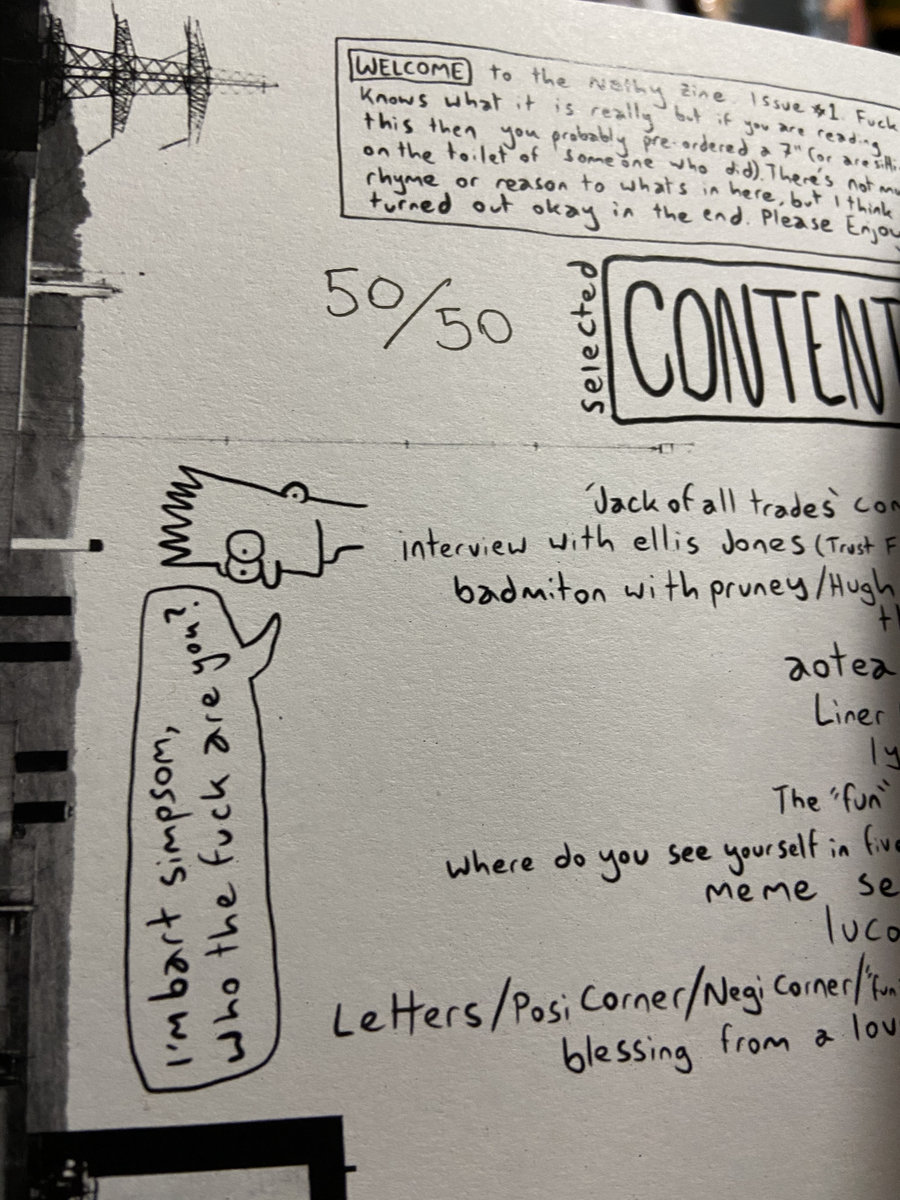 WELCOME to the Noihy zine. Issue #1. Fuck
knows what it is really but if you are reading
this then you probably pre-ordered a 7" (or are
on the toilet of someone who did). There's not
rhyme or reason to whats in here, but I think
turned out okay in the end. Please Enjoy
50/50
selected
CONTENT
'Jack of all trades'
interview with ellis Jones (Trust F
badmiton with pruney/Hugh
aotea
Liner
ly
The "fun"
where do you see yourself in five
meme se
luco
Letters/Posi Corner/Negi Corner/"fun"
blessing from a lov
I'm bart simpsom,
who the fuck are you?